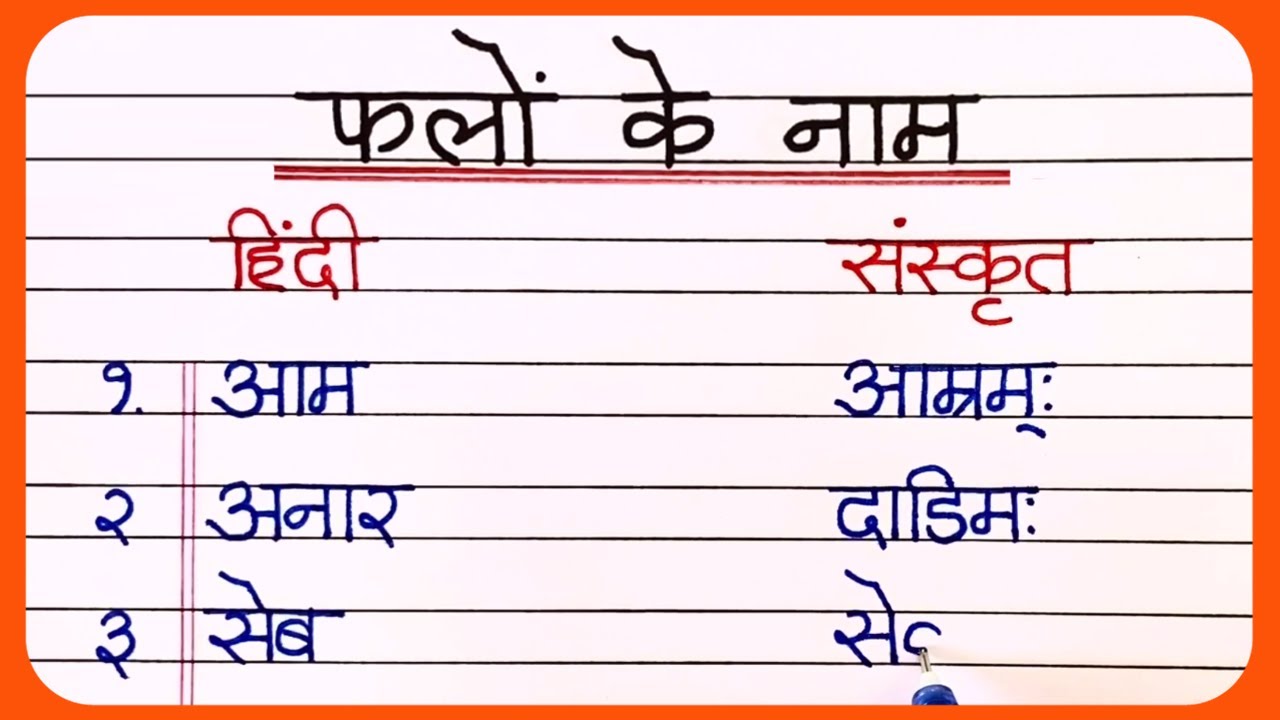 फलों के नाम
हिंदी संस्कृत
१. आम आम्रम्ः
२ अनार दाडिमः
३ सेब से